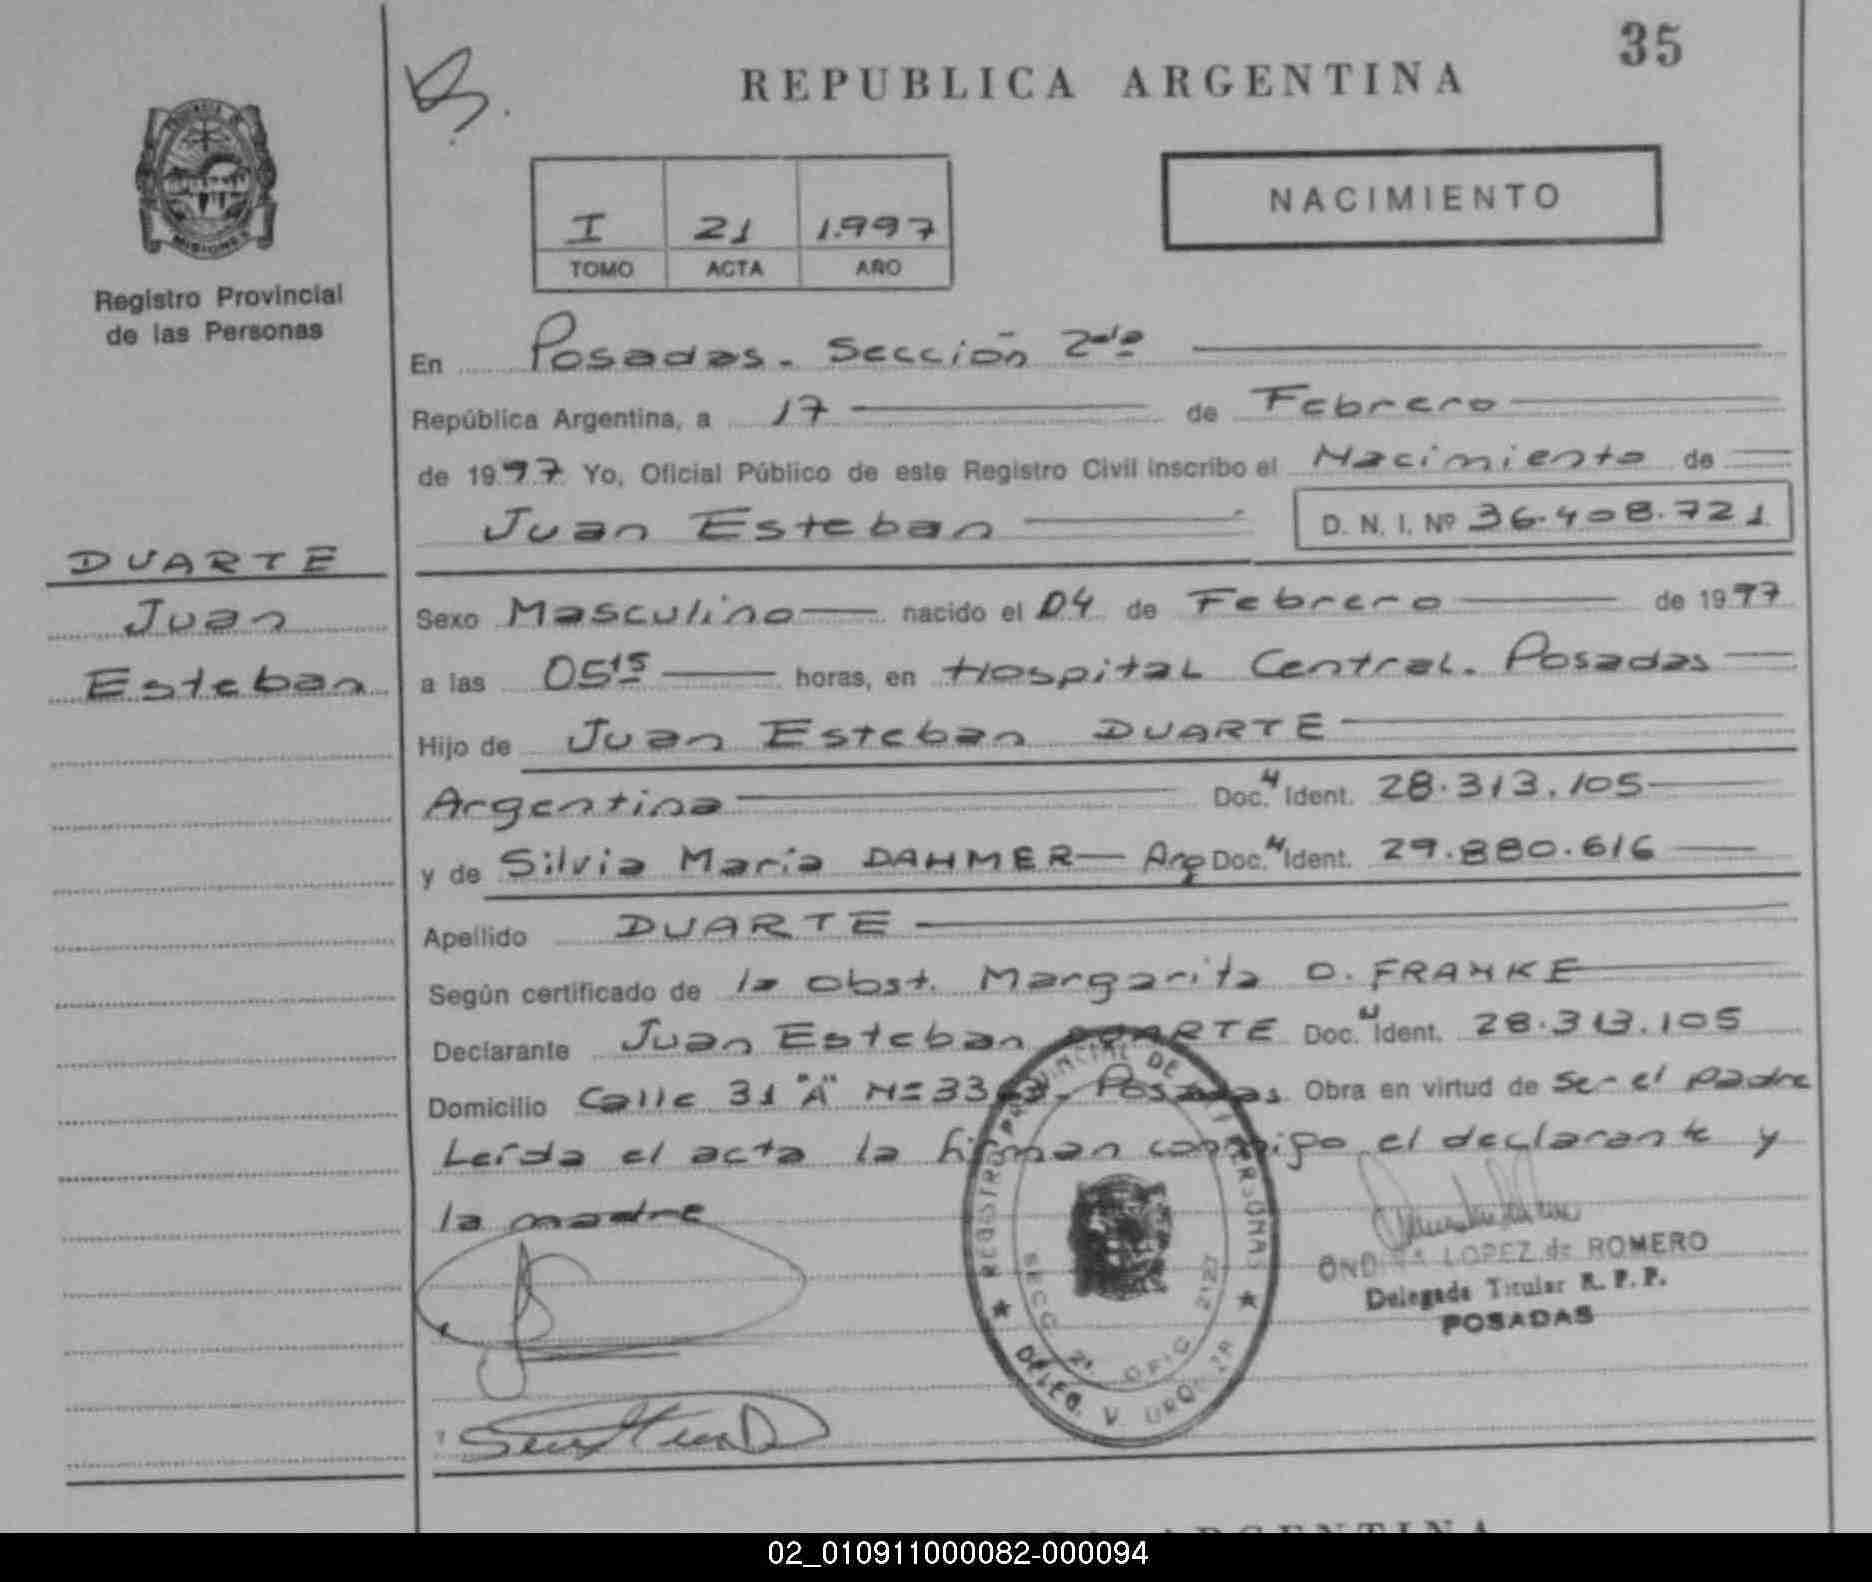 35
REPUBLICA ARGENTINA
NACIMIENTO
I 21 1.997
TOMO ACTA AÑO
MISIONES
Registro Provincial
de las Personas
En Posadas. Sección 2da
República Argentina, a 17 de Febrero
de 1997 Yo, Oficial Público de este Registro Civil inscribo el Nacimiento de
Juan Esteban D. N. I. Nº 36.408.721
DUARTE
Juan
Esteban
Sexo Masculino nacido el 04 de Febrero de 1997
a las 05 15 horas, en Hospital Central. Posadas
Hijo de Juan Esteban DUARTE
Argentina Doc. Ident. 28.313.105
y de Silvia María DAHMER Arg Doc. Ident. 29.880.616
Apellido DUARTE
Según certificado de la obst. Margarita O. FRANKE
Declarante Juan Esteban DUARTE Doc. Ident. 28.313.105
Domicilio Calle 31 "A" Nº Posadas Obra en virtud de ser el padre
Leída el acta la firman conmigo el declarante y
la madre
REGISTRO PROVINCIAL DE LAS PERSONAS
SECC 2ª OFIC 2127
DELEG. V. URQUIZA
LOPEZ de ROMERO
Delegada Titular R. P. P.
POSADAS
ARGENTINA
02_010911000082-000094